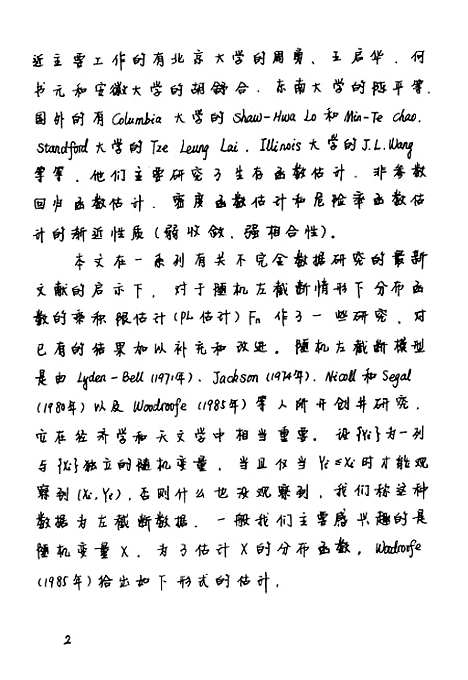 近主要工作的有北京大学的周勇、王启华、何
书元和安徽大学的胡舒合、东南大学的陈平等.
国外的有Columbia 大学的 Shaw-Hwa Lo 和 Min-Te Chao.
Standford大学的 Tze Leung Lai, Illinois大学的 J.L.Wang
等等，他们主要研究了生存函数估计、非参数
回归函数估计、密度函数估计和危险率函数估
计的渐近性质（弱收敛、强相合性）。
本文在一系列有关不完全数据研究的最新
文献的启示下，对于随机左截断情形下分布函
数的乘积限估计(PL估计) Fn 作了一些研究，对
已有的结果加以补充和改进。随机左截断模型
是由 Lyden-Bell (1971年)、Jackson (1974年)、Nicoll 和 Segal
(1980年) 以及 Woodroofe (1985年) 等人所开创并研究,
它在经济学和天文学中相当重要。设{Yi}为一列
与{Xi}独立的随机变量，当且仅当 Yi≤Xi 时才能观
察到 (Xi,Yi)，否则什么也没观察到，我们称这种
数据为左截断数据．一般我们主要感兴趣的是
随机变量X．为了估计X的分布函数，Woodroofe
(1985年)给出如下形式的估计，
2